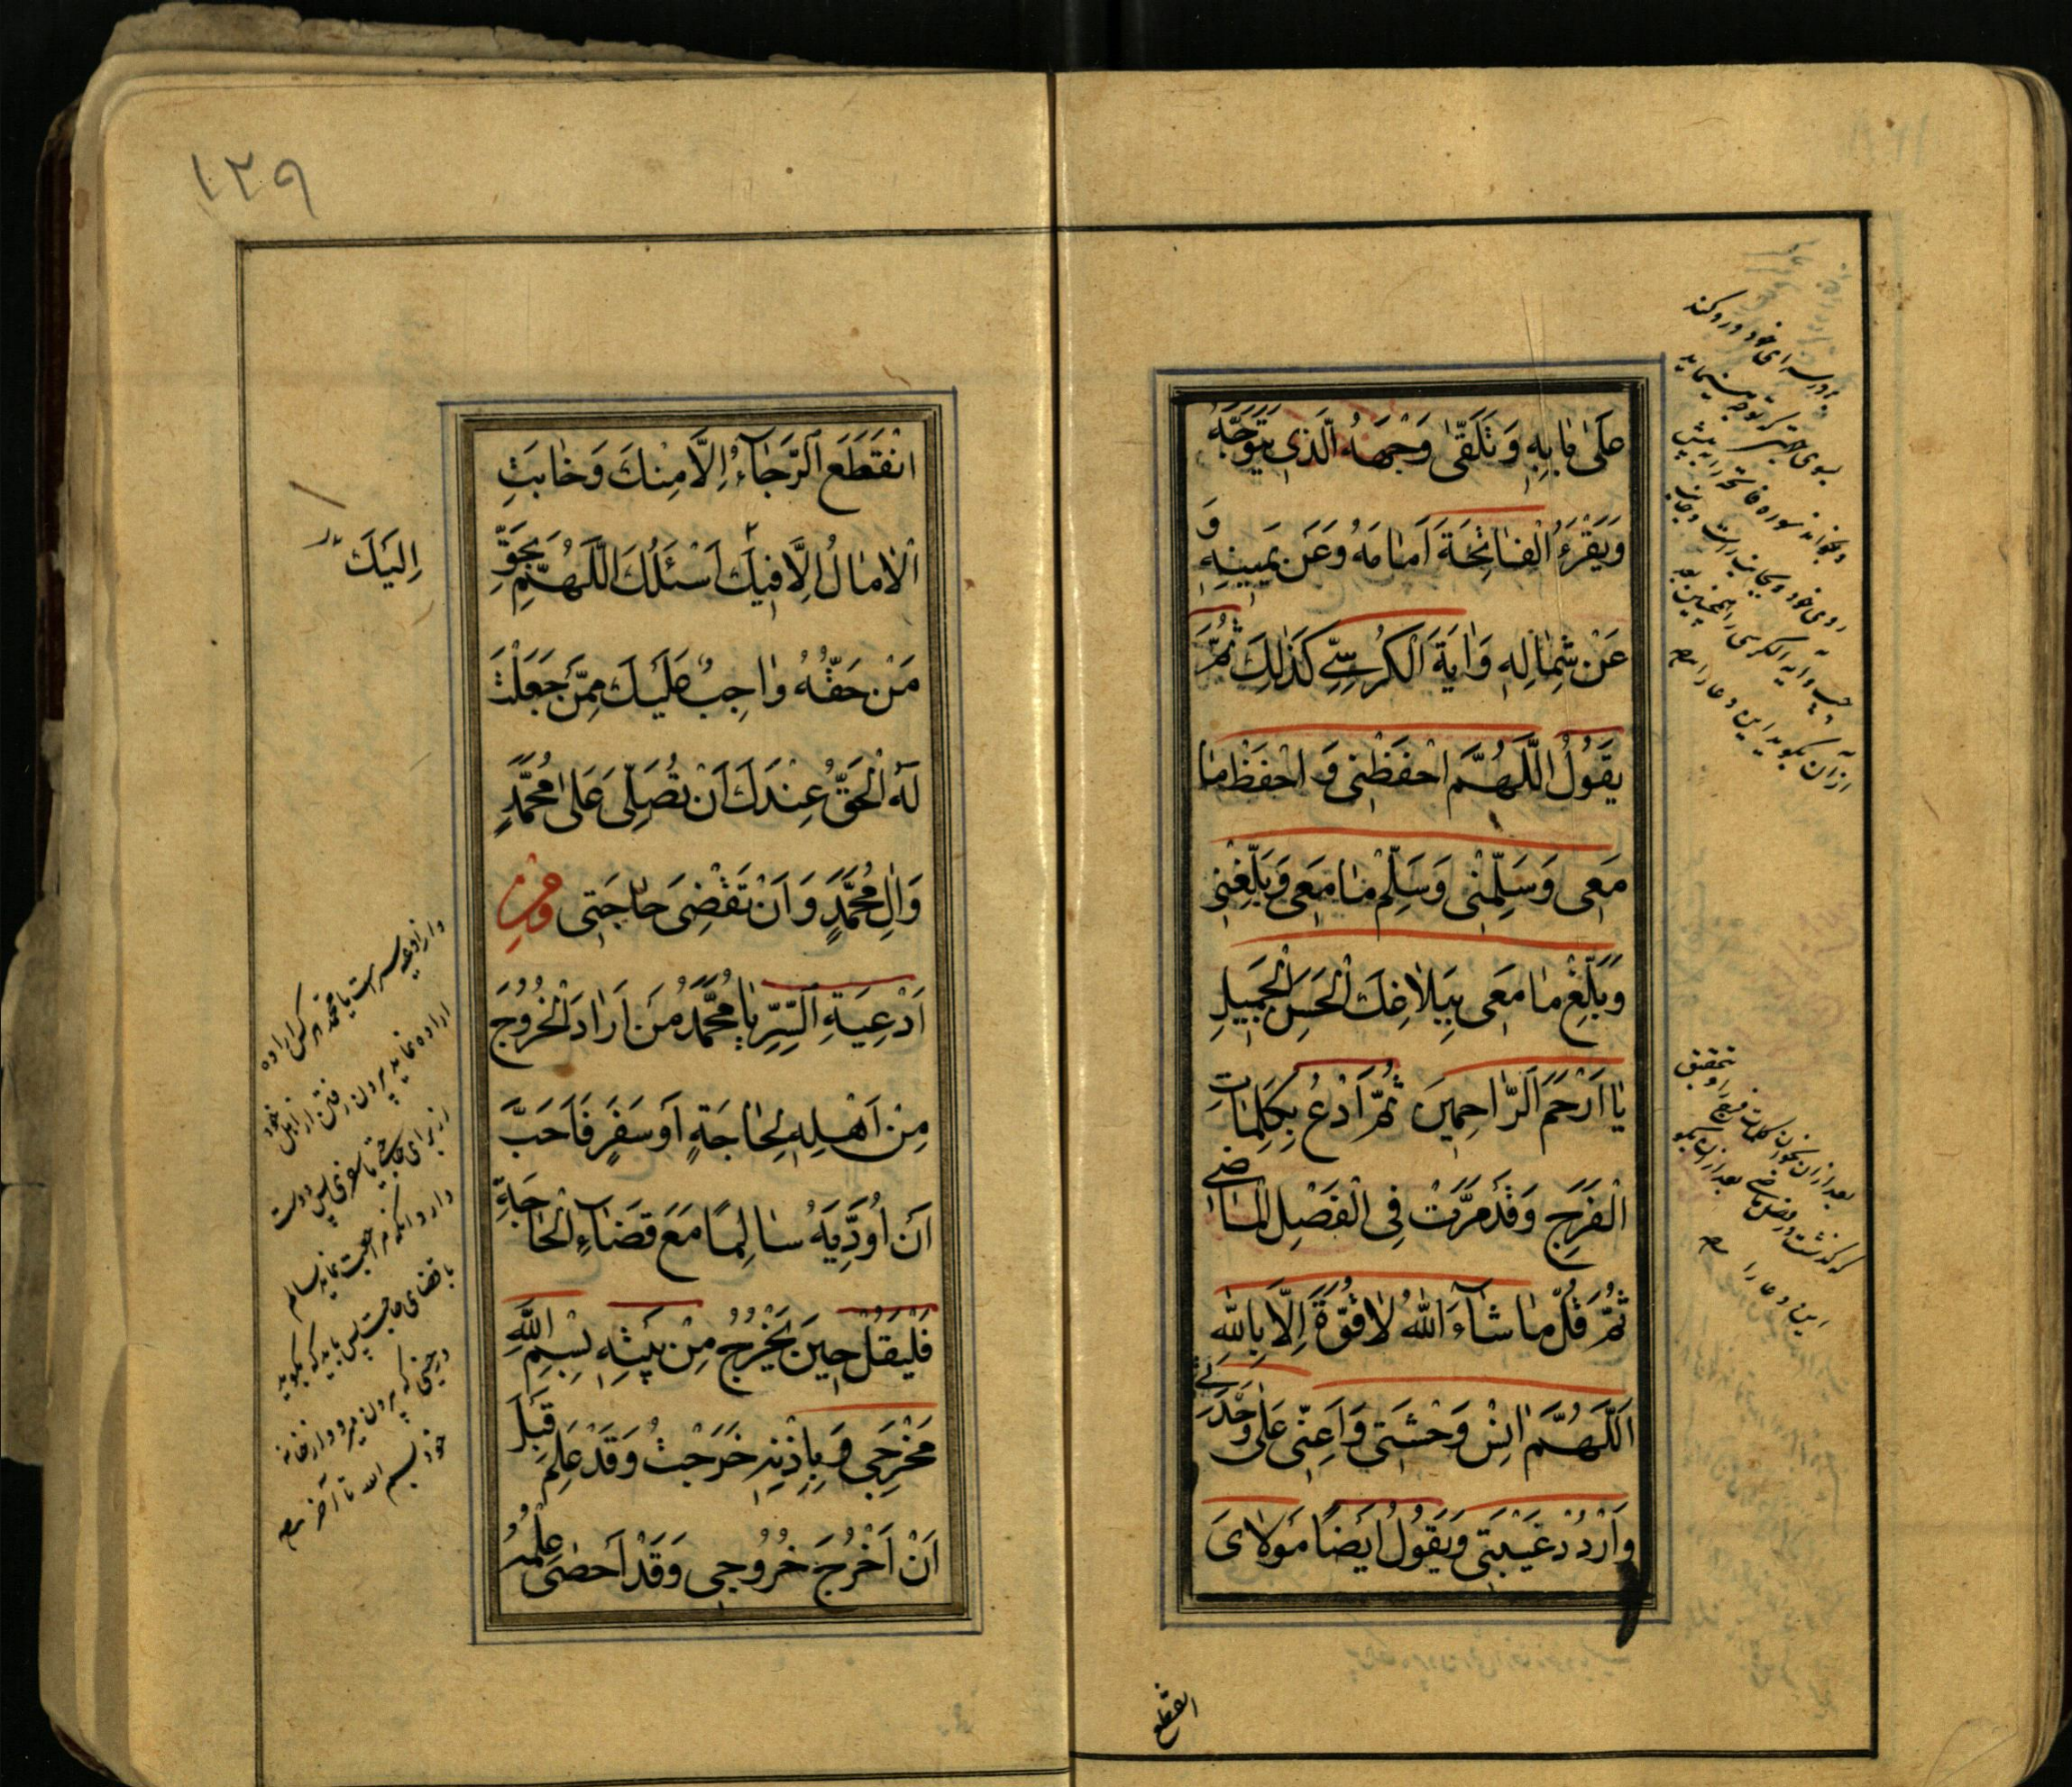 عَلىٰ بٰابِهِ وَ تَلَقّىٰ وَجْهَهُ الَّذي يَتَوَجَّهُ
وَيَقْرَءُ الْفٰاتِحَةَ اَمٰامَهُ وَعَنْ يَمينِهِ وَ
عَنْ شِمٰالِهِ وَاٰيَةَ الْكُرْسِيِّ كَذٰلِكَ ثُمَّ
يَقُولُ اللَّهُمَّ احْفَظْنى وَ احْفَظْ مٰا
مَعى وَسَلِّمْنى وَسَلِّمْ مٰا مَعى وَبَلِّغْنى
وَبَلِّغْ مٰا مَعى بِبَلاٰغِكَ الْحَسَنِ الْجَميلِ
يٰا اَرْحَمَ الرّٰاحِمينَ ثُمَّ اَدْعُ بِكَلِمٰاتِ
الْفَرَجِ وَقَدْ مَرَّتْ فِى الْفَصْلِ الْمٰاضى
ثُمَّ قُلْ مٰا شٰآءَ اللّٰهُ لاٰ قُوَّةَ اِلَّا بِاللّٰهِ
اَللَّهُمَّ اٰنِسْ وَحْشَتى وَاَعِنّى عَلىٰ وَحْدَتى
وَارْدُدْ غَيْبَتى وَيَقُولُ اَيْضًا مَوْلاٰىَ
انقطع
بسوى
و بخواند سوره فاتحه را به پیش
روى خود و بجانب راست و بجانب
چپ و آیه الکرسی را همچنین بعد
از آن بگوید این دعا را
بعد از آن بخوان کلمات فرج را و بتحقیق
که گذشت در فصل ماضی بعد از آن بگو
این دعا را
١٢٩
انْقَطَعَ الرَّجٰآءُ اِلاّٰ مِنْكَ وَخٰابَتِ
الْاٰمٰالُ اِلَّا فيكَ اَسْئَلُكَ اللَّهُمَّ بِحَقِّ
اِلَيْكَ
مَنْ حَقُّهُ وٰاجِبٌ عَلَيْكَ مِمَّنْ جَعَلْتَ
لَهُ الْحَقَّ عِنْدَكَ اَنْ تُصَلِّىَ عَلىٰ مُحَمَّدٍ
وَاٰلِ مُحَمَّدٍ وَ اَنْ تَقْضِىَ حٰاجَتى وَمِنْ
اَدْعِيَةِ السِّرِّ يٰا مُحَمَّدُ مَنْ اَرٰادَ الْخُرُوجَ
مِنْ اَهْلِهِ لِحٰاجَةٍ اَوْ سَفَرٍ فَاَحَبَّ
اَنْ اُؤَدِّيَهُ سٰالِمًا مَعَ قَضٰآءِ الْحٰاجَةِ
فَلْيَقُلْ حينَ يَخْرُجُ مِنْ بَيْتِهِ بِسْمِ اللّٰهِ
مَخْرَجى وَ بِاِذْنِهِ خَرَجْتُ وَقَدْ عَلِمَ قَبْلَ
اَنْ اَخْرُجَ خُرُوجى وَقَدْ اَحْصىٰ عِلْمُهُ
و از ادعیه سر است یا محمد هر کس اراده
اراده نماید بیرون رفتن از اهل خود
از برای حاجتی یا سفری پس دوست
دارد انکه مراجعت نماید سالم
با قضای حاجت پس باید که بگوید
در حینی که بیرون میرود از خانه
خود بسم الله تا آخر